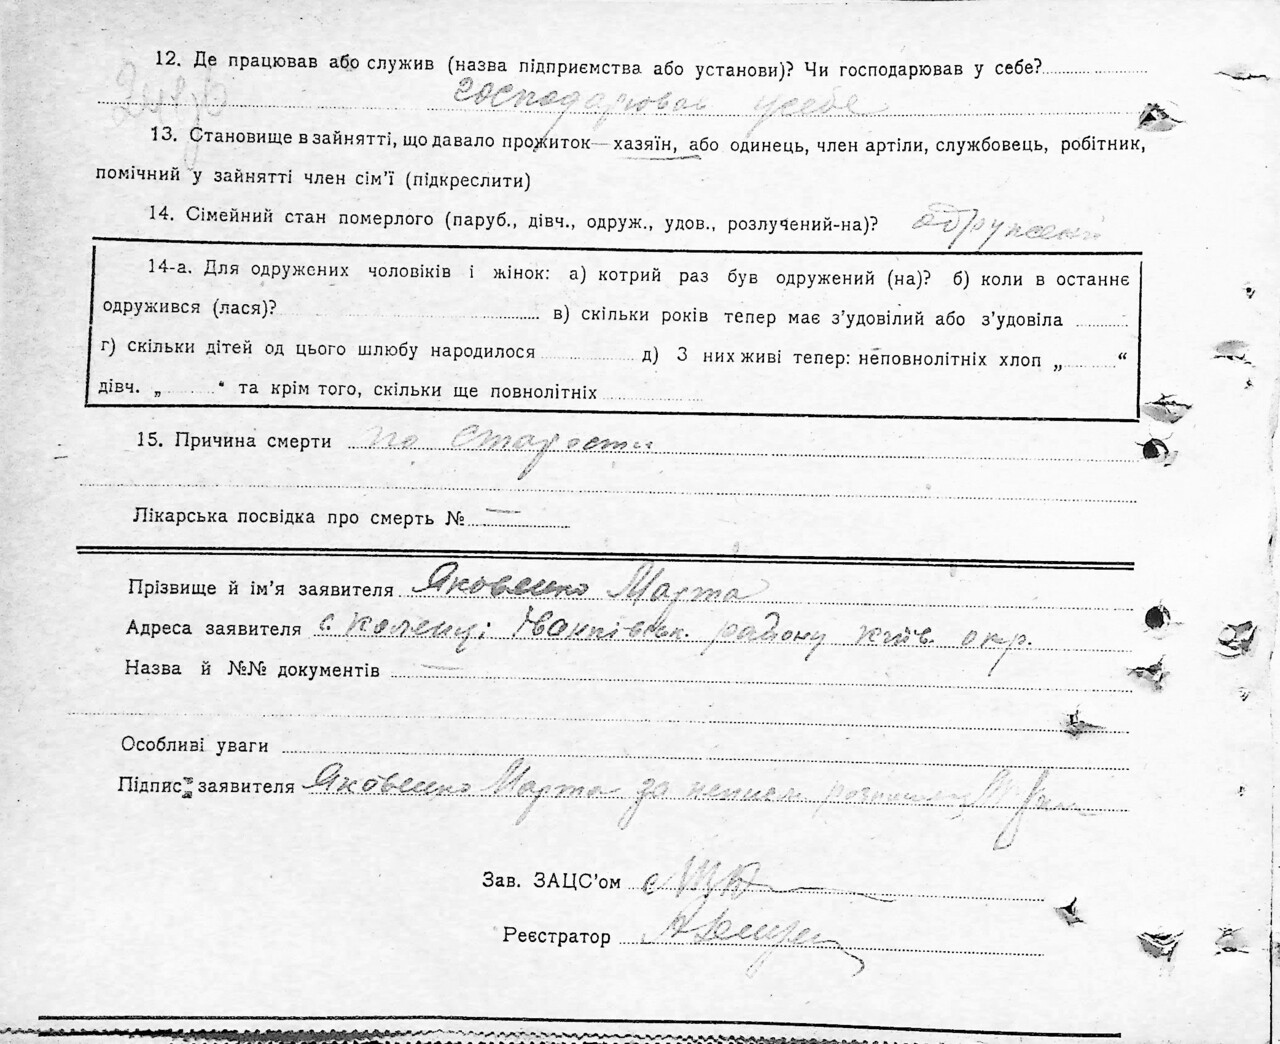 12. Де працював або служив (назва підприємства або установи)? Чи господарював у себе?
господарював у себе
13. Становище в зайнятті, що давало прожиток—хазяїн, або одинець, член артіли, службовець, робітник,
помічний у зайнятті член сім'ї (підкреслити)
14. Сімейний стан померлого (паруб., дівч., одруж., удов., розлучений-на)?
14-а. Для одружених чоловіків і жінок: а) котрий раз був одружений (на)? б) коли в останнє
одружився (лася)? в) скільки років тепер має з'удовілий або з'удовіла
г) скільки дітей од цього шлюбу народилося д) З них живі тепер: неповнолітніх хлоп „ “
дівч. „ “ та крім того, скільки ще повнолітніх
15. Причина смерти по старости
Лікарська посвідка про смерть № —
Прізвище й ім'я заявителя Яковенко Марта
Адреса заявителя с. Коленці Іванківськ. району Київ. окр.
Назва й №№ документів —
Особливі уваги
Підпис заявителя Яковенко Марта за неписьм.
Зав. ЗАЦС'ом
Реєстратор